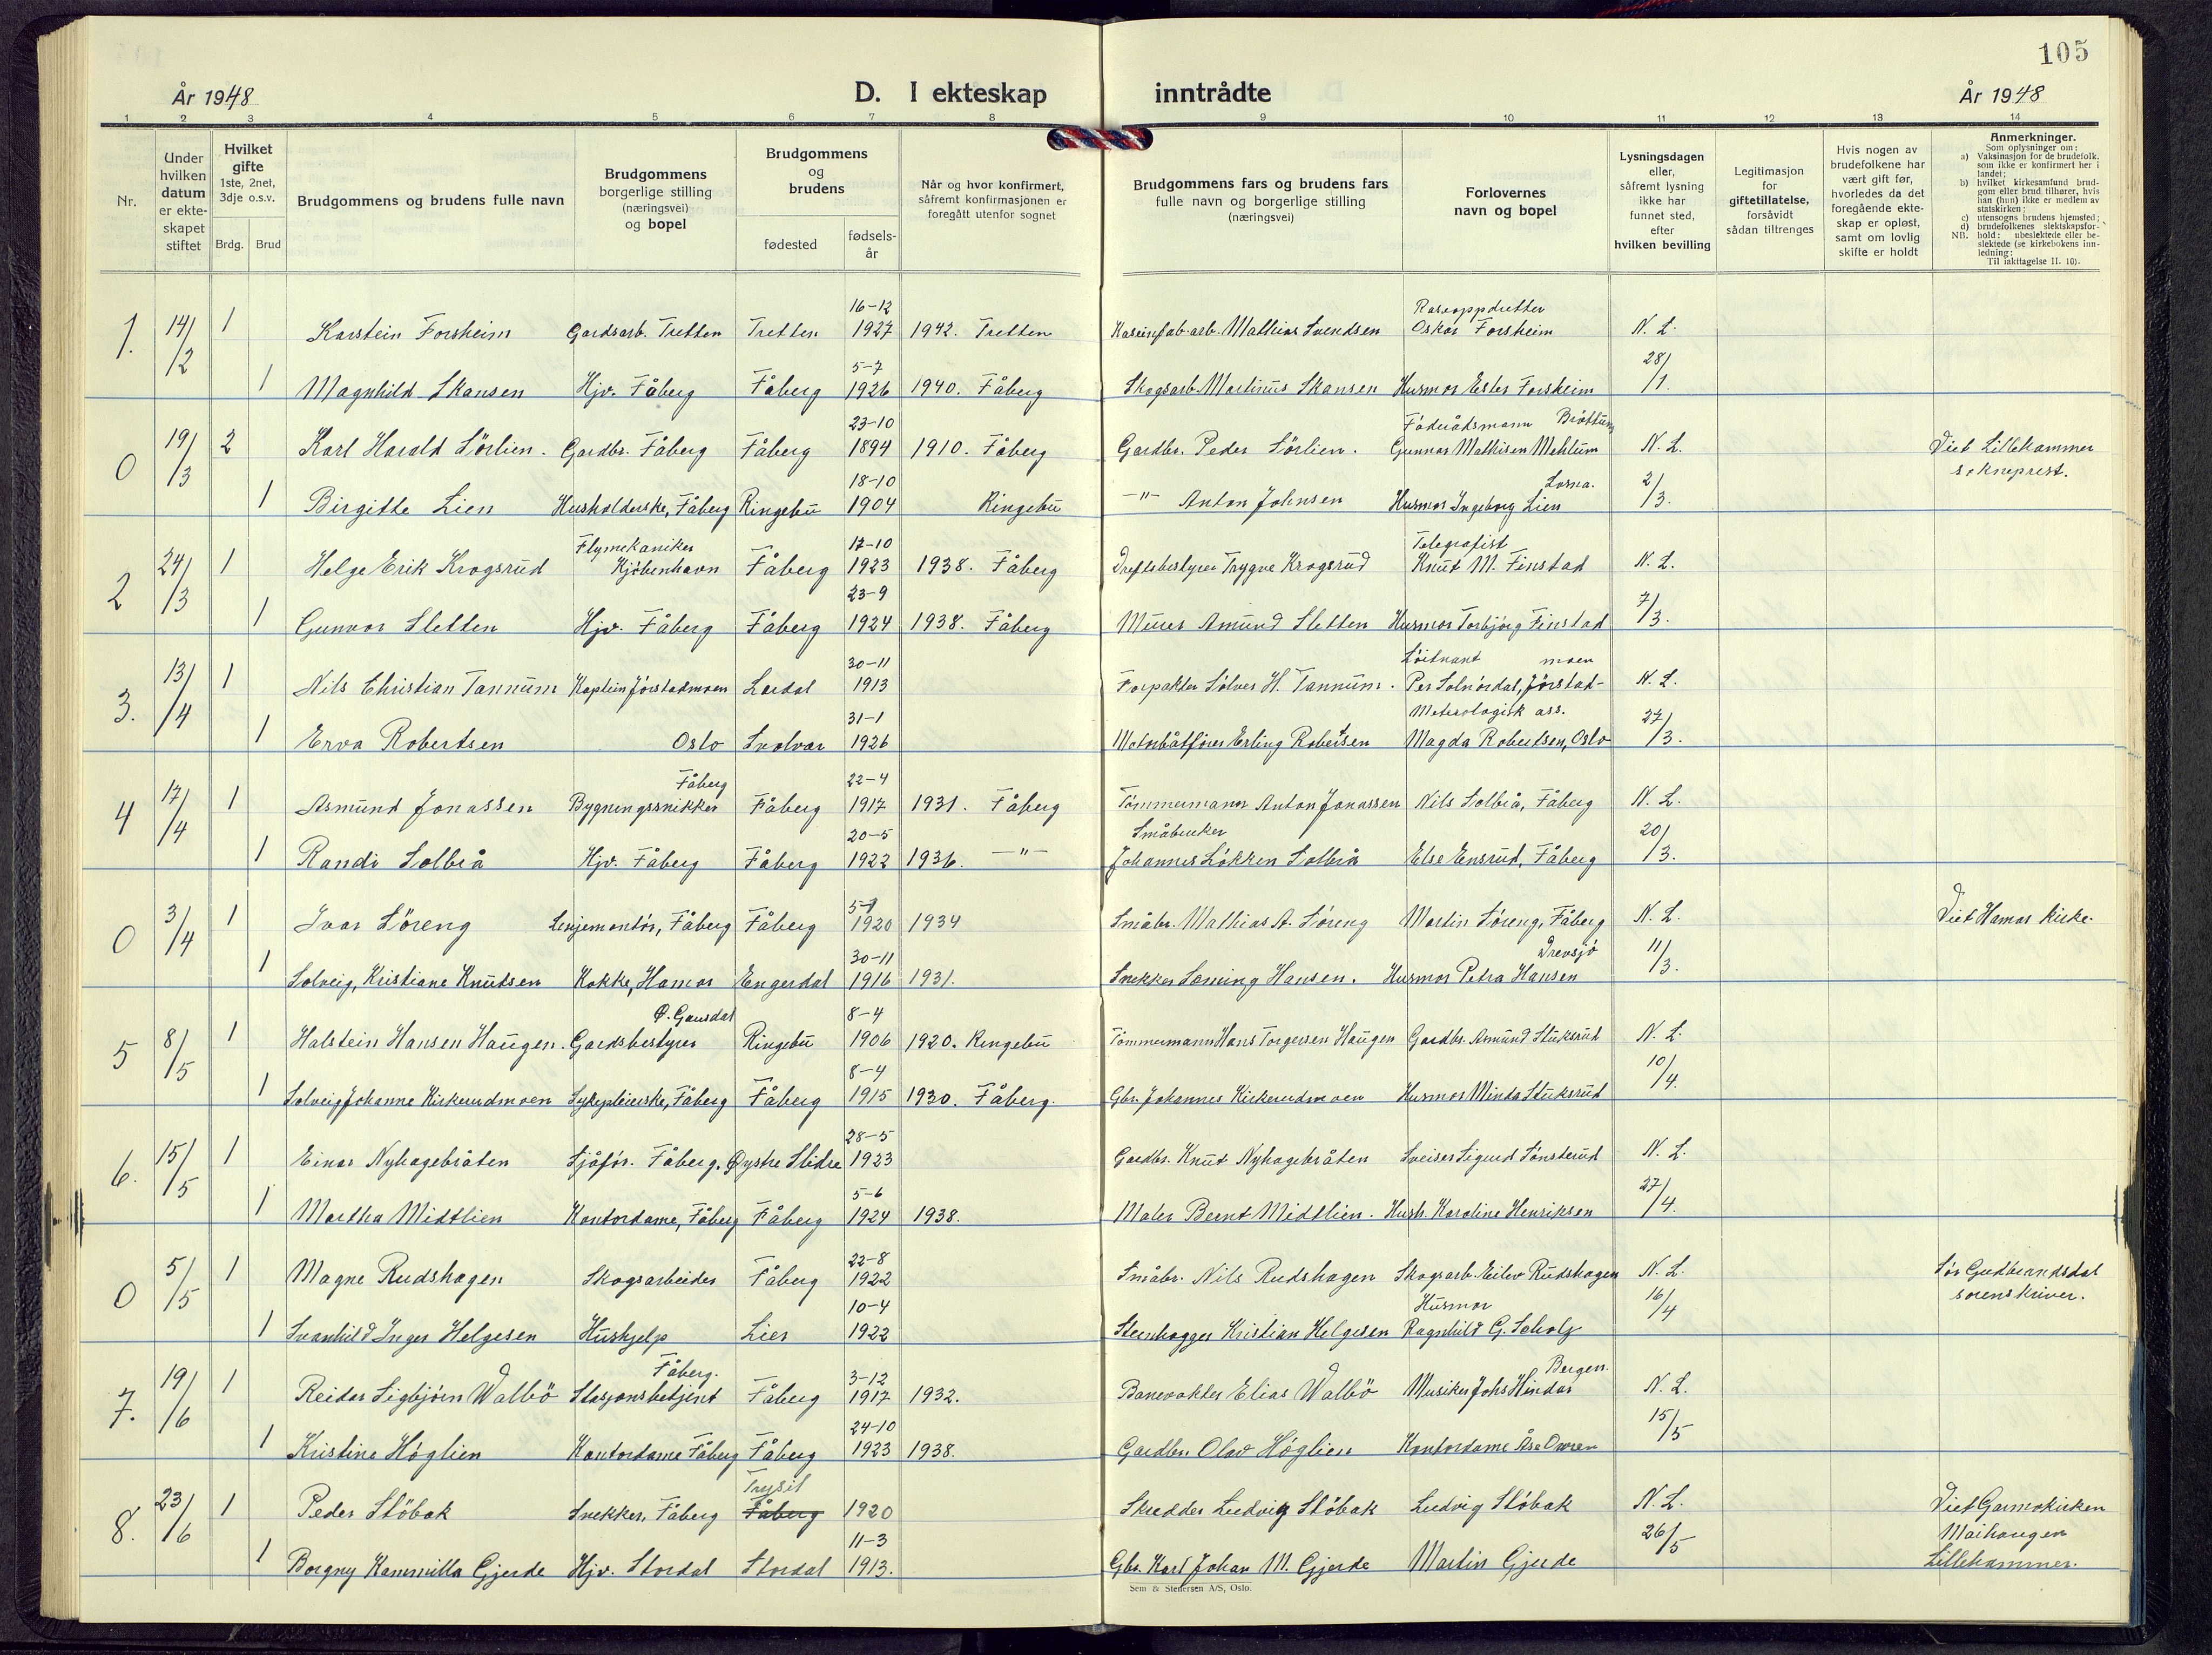 105
År 1948 D. I ekteskap inntrådte År 1948
1 2 3 4 5 6 7 8 9 10 11 12 13 14
Nr.
Under hvilken datum er ekte-skapet stiftet
Hvilket gifte 1ste, 2net, 3dje o.s.v.
Brdg. Brud
Brudgommens og brudens fulle navn
Brudgommens borgerlige stilling (næringsvei) og bopel
Brudgommens og brudens
fødested fødsels-år
Når og hvor konfirmert, såfremt konfirmasjonen er foregått utenfor sognet
Brudgommens fars og brudens fars fulle navn og borgerlige stilling (næringsvei)
Forlovernes navn og bopel
Lysningsdagen eller, såfremt lysning ikke har funnet sted, efter hvilken bevilling
Legitimasjon for giftetillatelse, forsåvidt sådan tiltrenges
Hvis nogen av brudefolkene har vært gift før, hvorledes da det foregående ekte-skap er opløst, samt om lovlig skifte er holdt
Anmerkninger.
Som oplysninger om:
a) Vaksinasjon for de brudefolk, som ikke er konfirmert her i landet;
b) hvilket kirkesamfund brud-gom eller brud tilhører, hvis han (hun) ikke er medlem av statskirken;
c) utensogns brudens hjemsted;
d) brudefolkenes slektskapsfor-hold: ubeslektede eller be-slektede (se kirkebokens inn-ledning:
NB. Til iakttagelse II. 10).
16-12 Raseoppdretter
1. 14/2 1 Karstein Forsheim Gardsarb. Tretten Tretten 1927 1942. Tretten Kaseinfab.arb. Mathias Svendsen Oskar Forsheim N. L.
5-7 28/1.
1 Magnhild Skansen Hjv. Fåberg Fåberg 1926 1940. Fåberg Skogsarb. Martinus Skansen Husmor Ester Forsheim
23-10 Föderådsmann Bröttum
0 19/3 2 Karl Harald Sörlien. Gardbr. Fåberg Fåberg 1894 1910. Fåberg Gardbr. Peder Sörlien. Gunnar Mathisen Mehlum N. L. Viet Lillehammer
18-10 Losna. 2/3. sokneprest.
1 Birgitte Lien Husholderske, Fåberg Ringebu 1904 Ringebu —"— Anton Johnsen Husmor Ingeborg Lien
Flymekaniker 17-10 Telegrafist
2 24/3 1 Helge Erik Krogsrud Kjöbenhavn Fåberg 1923 1938. Fåberg Driftsbestyrer Trygve Krogsrud Knut M. Finstad N. L.
23-9 7/3.
1 Gunvor Sletten Hjv. Fåberg Fåberg 1924 1938. Fåberg Murer Amund Sletten Husmor Torbjörg Finstad
30-11 Löitnant moen
3. 13/4 1 Nils Christian Tannum Kaptein Jörstadmoen Lardal 1913 Forpakter Sölver H. Tannum. Per Solnördal, Jörstad- N. L.
31-1 Meteologisk ass. 27/3.
1 Erva Robertsen Oslo Svolvær 1926 Motorbåtförer Erling Robertsen Magda Robertsen, Oslo
Fåberg 22-4
4 17/4 1 Asmund Jonassen Bygningssnikker Fåberg 1917 1931. Fåberg Tömmermann Anton Jonassen Nils Solbrå, Fåberg N. L.
20-5 Småbruker 20/3.
1 Randi Solbrå Hjv. Fåberg Fåberg 1922 1936. —"— Johannes Lökken Solbrå Else Ensrud, Fåberg
0 3/4 1 Ivar Söreng Linjemontör, Fåberg Fåberg 1920 1934 Småbr. Mathias A. Söreng Martin Söreng, Fåberg N. L. Viet Hamar kirke.
30-11 Drevsjö 11/3.
1 Solveig, Kristiane Knutsen Kokke, Hamar Engerdal 1916 1931. Snekker Sæming Hansen. Husmor Petra Hansen
Ø. Gausdal 8-4
5 8/5 1 Halstein Hansen Haugen. Gardsbestyrer Ringebu 1906 1920. Ringebu Tömmermann Hans Torgersen Haugen Gardbr. Amund Stuksrud N. L.
8-4 10/4.
1 Solveig Johanne Kirkerudmoen Sykepleierske, Fåberg Fåberg 1915 1930. Fåberg. Gbr. Johannes Kirkerudmoen Husmor Minda Stuksrud
28-5
6. 15/5 1 Einar Nyhagebråten Sjåför. Fåberg. Øystre Slidre 1923 Gardbr. Knut Nyhagebråten Sveiser Sigurd Sönsterud N. L.
5-6 27/4.
1 Martha Midtlien Kontordame, Fåberg Fåberg 1924 1938. Maler Bernt Midtlien. Hush. Karoline Henriksen
22-8
0 5/5 1 Magne Rudshagen Skogsarbeider Fåberg 1922 Småbr. Nils Rudshagen Skogsarb. Eilev Rudshagen N. L. Sör Gudbrandsdal
10-4 Husmor 16/4 sorenskriver.
1 Svanhild Inger Helgesen Hushjelp Lier 1922 Steinhogger Kristian Helgesen Ragnhild G. Scholz
Fåberg. 3-12 Bergen.
7. 19/6 1 Reidar Sigbjörn Walbö Stasjonsbetjent Fåberg 1917 1932. Banevokter Elias Walbö Musiker Johs Hindar N. L.
24-10 15/5
1 Kristine Höglien Kontordame Fåberg Fåberg 1923 1938. Gardbr. Olav Höglien Kontordame Åse Owren
Trysil
8. 23/6 1 Peder Stöbak Snekker, Fåberg Fåberg 1920 Skredder Ludvig Stöbak Ludvig Stöbak N. L. Viet Garmokirken
11-3 26/5 Maihaugen
1 Borgny Kammilla Gjerde Hjv. Stordal Stordal 1913. Gbr. Karl Johan M. Gjerde Martin Gjerde Lillehammer.
Sem & Stenersen A/S, Oslo.